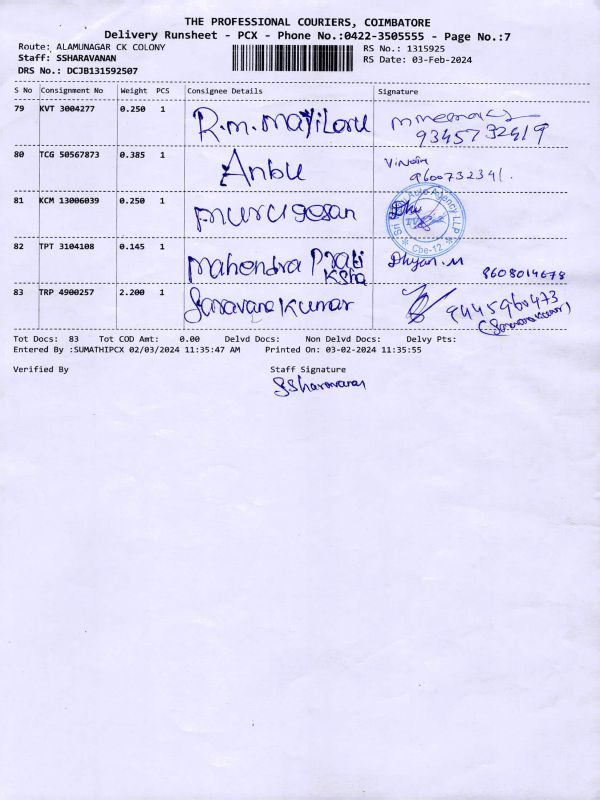 THE PROFESSIONAL COURIERS, COIMBATORE
Delivery Runsheet - PCX - Phone No.:0422-3505555 - Page No.:7
Route: ALAMUNAGAR CK COLONY RS No.: 1315925
Staff: SSHARAVANAN RS Date: 03-Feb-2024
DRS No.: DCJB131592507
S No Consignment No Weight PCS Consignee Details Signature
79 KVT 3004277 0.250 1 R.m. mayiloru
9345732419
80 TCG 50567873 0.385 1 Anbu
9600732341.
81 KCM 13006039 0.250 1 murugesan
Auto Agency LLP
Cbe-12
82 TPT 3104108 0.145 1 Mahendra Prati Dhyan.M
Ksha 8608014678
83 TRP 4900257 2.200 1 Saravanakumar 9445960473
(Saravanakumar)
Tot Docs: 83 Tot COD Amt: 0.00 Delvd Docs: Non Delvd Docs: Delvy Pts:
Entered By :SUMATHIPCX 02/03/2024 11:35:47 AM Printed On: 03-02-2024 11:35:55
Verified By Staff Signature
SSharavanan